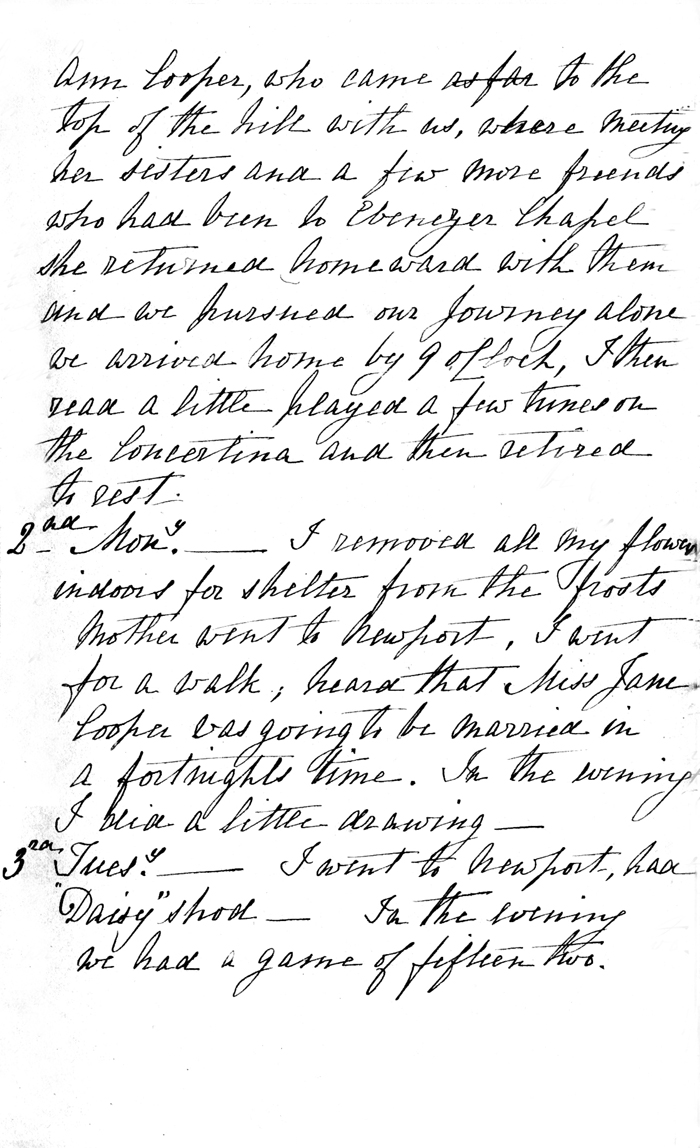 Ann Cooper, who came as far to the
top of the hill with us, where meeting
her sisters and a few more friends
who had been to Ebenezer Chapel
she returned homeward with them
and we pursued our Journey alone
we arrived home by 9 oClock, I then
read a little played a few tunes on
the Concertina and then retired
to rest.
2nd Mony. — I removed all my flower
indoors for shelter from the frosts
Mother went to Newport, I went
for a walk; heard that Miss Jane
Cooper was going to be married in
a fortnights time. In the evening
I did a little drawing —
3rd Tuesy. — I went to Newport, had
"Daisy" shod — In the evening
we had a game of fifteen two.